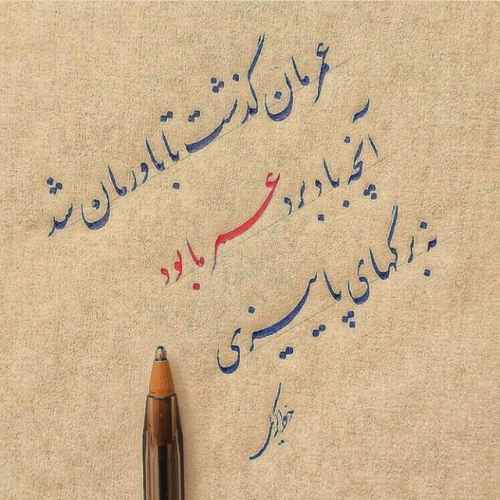 عمرمان گذشت تا باورمان شد
آنچه باد برد عمر ما بود
نه برگهای پاییزی